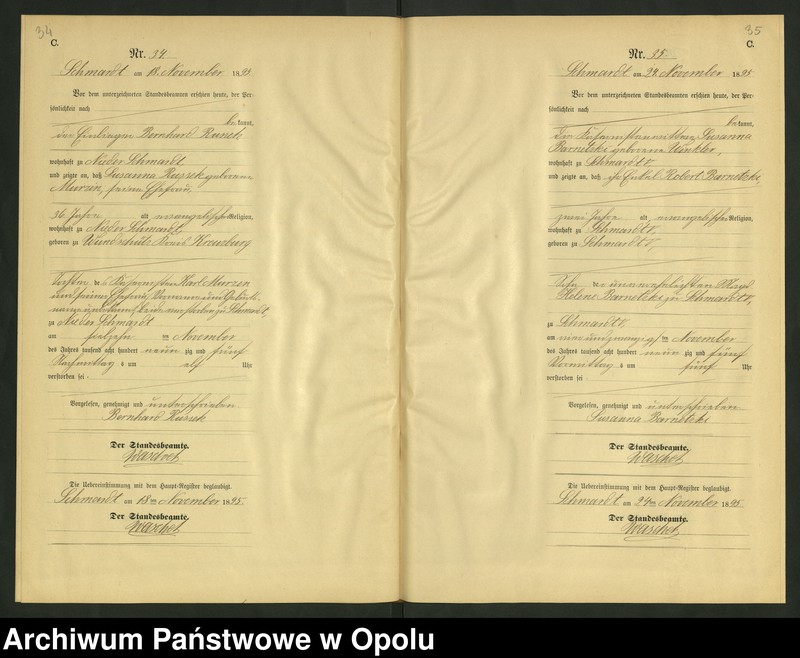 34
C.
Nr. 34
Schmardt am 18. November 1895
Vor dem unterzeichneten Standesbeamten erschien heute, der Per-
sönlichkeit nach
be kannt,
der Einlieger Bernhard Russek
wohnhaft zu Nieder Schmardt
und zeigte an, daß Susanna Russek geborene
Murzin, seine Ehefrau,
36 Jahre alt, evangelischer Religion,
wohnhaft zu Nieder Schmardt,
geboren zu Kreis Kreuzburg
Tochter des Karl Murzin
und seiner Ehefrau
verstorben zu Schmardt
zu Nieder Schmardt
am November
des Jahres tausend acht hundert neun zig und fünf
Nachmittags um elf Uhr
verstorben sei
Vorgelesen, genehmigt und unterschrieben
Bernhard Russek
Der Standesbeamte.
Waschek
Die Uebereinstimmung mit dem Haupt-Register beglaubigt.
Schmardt am 18ten November 1895.
Der Standesbeamte.
Waschek
35
C.
Nr. 35
Schmardt am 24. November 1895
Vor dem unterzeichneten Standesbeamten erschien heute, der Per-
sönlichkeit nach
be kannt,
die Susanna
Barnetzki geborene Winkler,
wohnhaft zu Schmardt
und zeigte an, daß ihr Enkel Robert Barnetzki,
zwei Jahre alt, evangelischer Religion,
wohnhaft zu Schmardt
geboren zu Schmardt
Sohn der unverehelichten Magd
Helene Barnetzki zu Schmardt
zu Schmardt
am vierundzwanzigsten November
des Jahres tausend acht hundert neun zig und fünf
Vormittags um fünf Uhr
verstorben sei
Vorgelesen, genehmigt und unterschrieben
Susanna Barnetzki
Der Standesbeamte.
Waschek
Die Uebereinstimmung mit dem Haupt-Register beglaubigt.
Schmardt am 24ten November 1895.
Der Standesbeamte.
Waschek
Archiwum Państwowe w Opolu